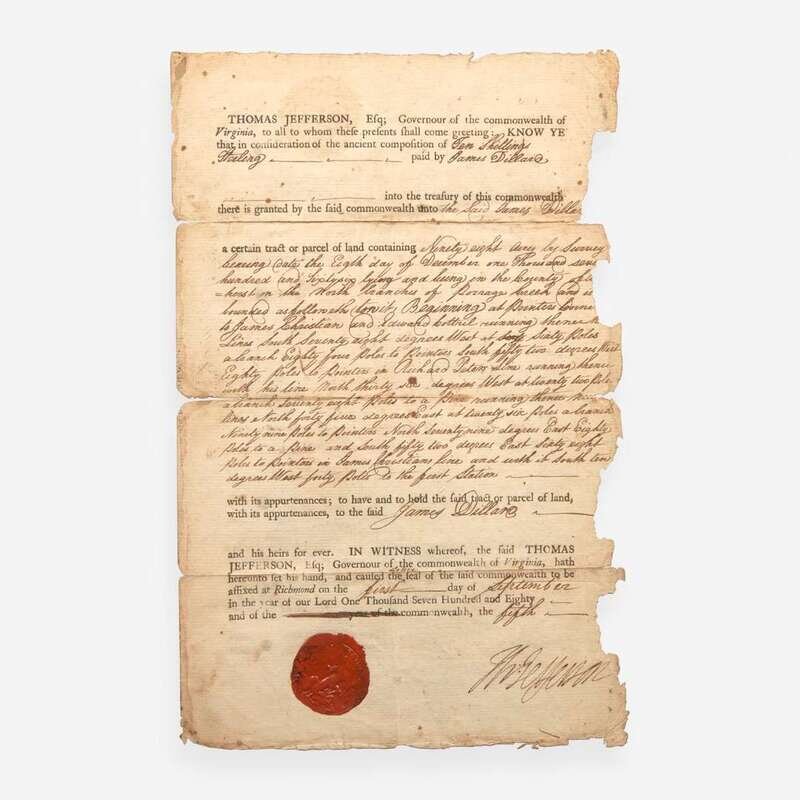 THOMAS JEFFERSON, Esq; Governour of the commonwealth of
Virginia, to all to whom these presents shall come greeting: KNOW YE
that in consideration of the ancient composition of Ten Shillings
Sterling paid by James Dillard
into the treasury of this commonwealth
there is granted by the said commonwealth unto the Said James Dillar
a certain tract or parcel of land containing Ninety eight Acres by Survey
bearing date the Eighth day of December one Thousand seve
hundred and Sixty six lying and being in the County of
=herst in the North Branches of Porrage Creek and is
bounded as followeth towit, Beginning at Pointers Corner
to James Christian and Edward Bottrel running thence
lines South Seventy eight degrees West at Sixty Poles
a branch Eighty four Poles to Pointers South fifty two degrees West
Eighty Poles to Pointers in Richard line running thence
with his line North thirty six degrees West at twenty two Pole
a branch Seventy eight Poles to a Pine running thence
lines North forty five degrees East at twenty six Poles a branch
Ninety nine Poles to Pointers North Seventy nine degrees East Eighty
Poles to a Pine and South fifty two degrees East Sixty eight
Poles to Pointers in James Christians line and with it South ten
degrees West forty Poles to the first Station
with its appurtenances; to have and to hold the said tract or parcel of land,
with its appurtenances, to the said James Dillard
and his heirs for ever. IN WITNESS whereof, the said THOMAS
JEFFERSON, Esq; Governour of the commonwealth of Virginia, hath
hereunto set his hand, and caused the seal of the said commonwealth to be
affixed at Richmond on the first day of September
in the year of our Lord One Thousand Seven Hundred and Eighty
and of the commonwealth, the fifth
Th Jefferson